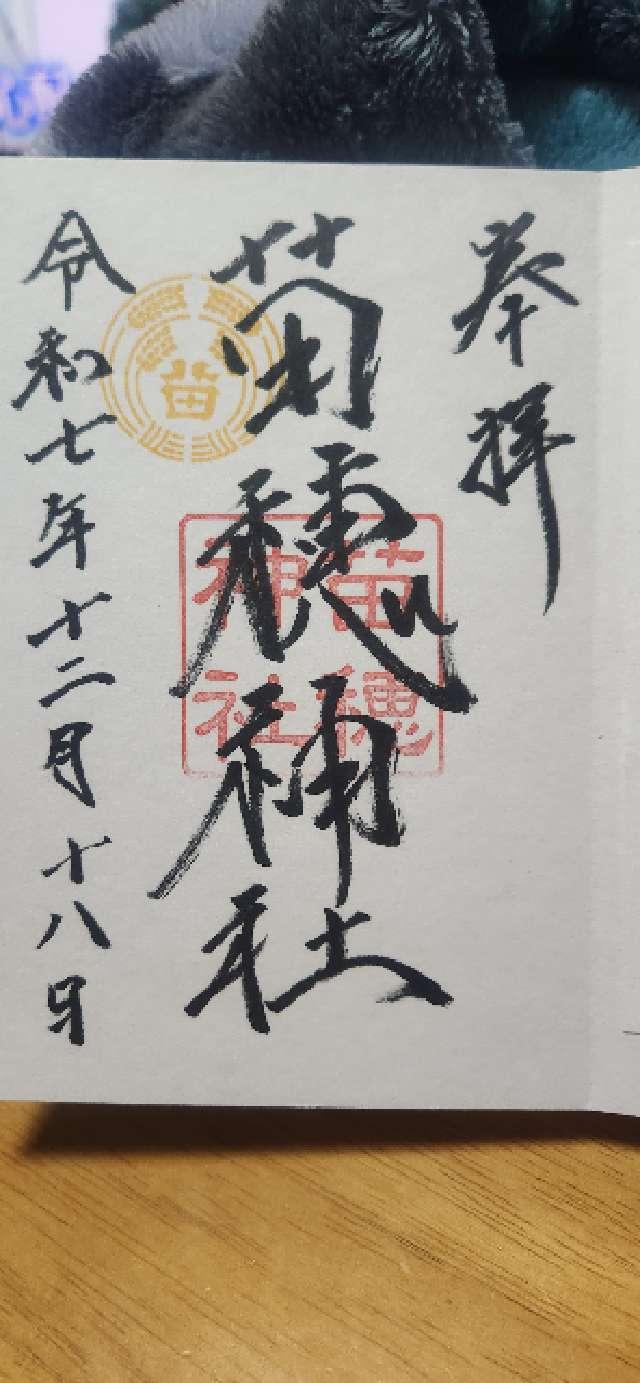 奉拝
苗穂神社
苗穂
神社
苗
令和七年十二月十八日